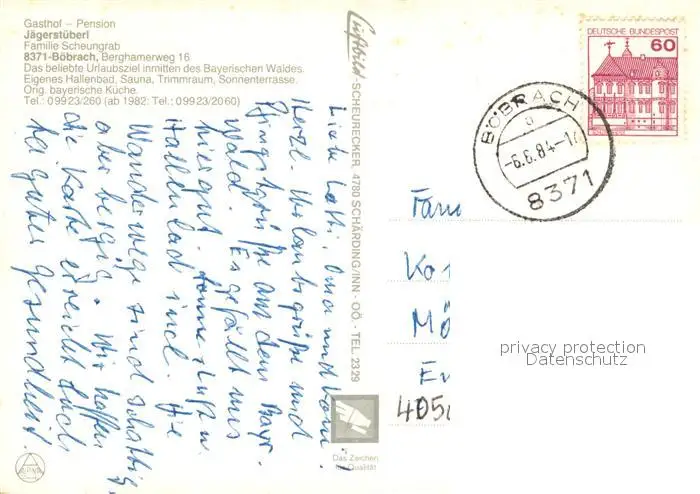 Gasthof – Pension
Jägerstüberl
Familie Scheungrab
8371-Böbrach, Berghamerweg 16
Das beliebte Urlaubsziel inmitten des Bayerischen Waldes.
Eigenes Hallenbad, Sauna, Trimmraum, Sonnenterrasse.
Orig. bayerische Küche.
Tel.: 09923/260 (ab 1982: Tel.: 09923/2060)
Liebe Oma und
Herzl. Urlaubsgrüße und
Pfingstgrüße aus dem Bayr.
Wald. Es gefällt uns
hier gut
Hallenbad sind. Die
Wanderwege sind schattig,
aber bergig. Wir hoffen
die Karte erreicht Euch
bei guter Gesundheit.
Luftbild SCHEURECKER, 4780 SCHÄRDING/INN - OÖ. - TEL. 2329
Das Zeichen
für Qualität
DEUTSCHE BUNDESPOST
60
BÖBRACH
a
-6.6.84-17
8371
Fam
Ko
Mö
405
privacy protection
Datenschutz